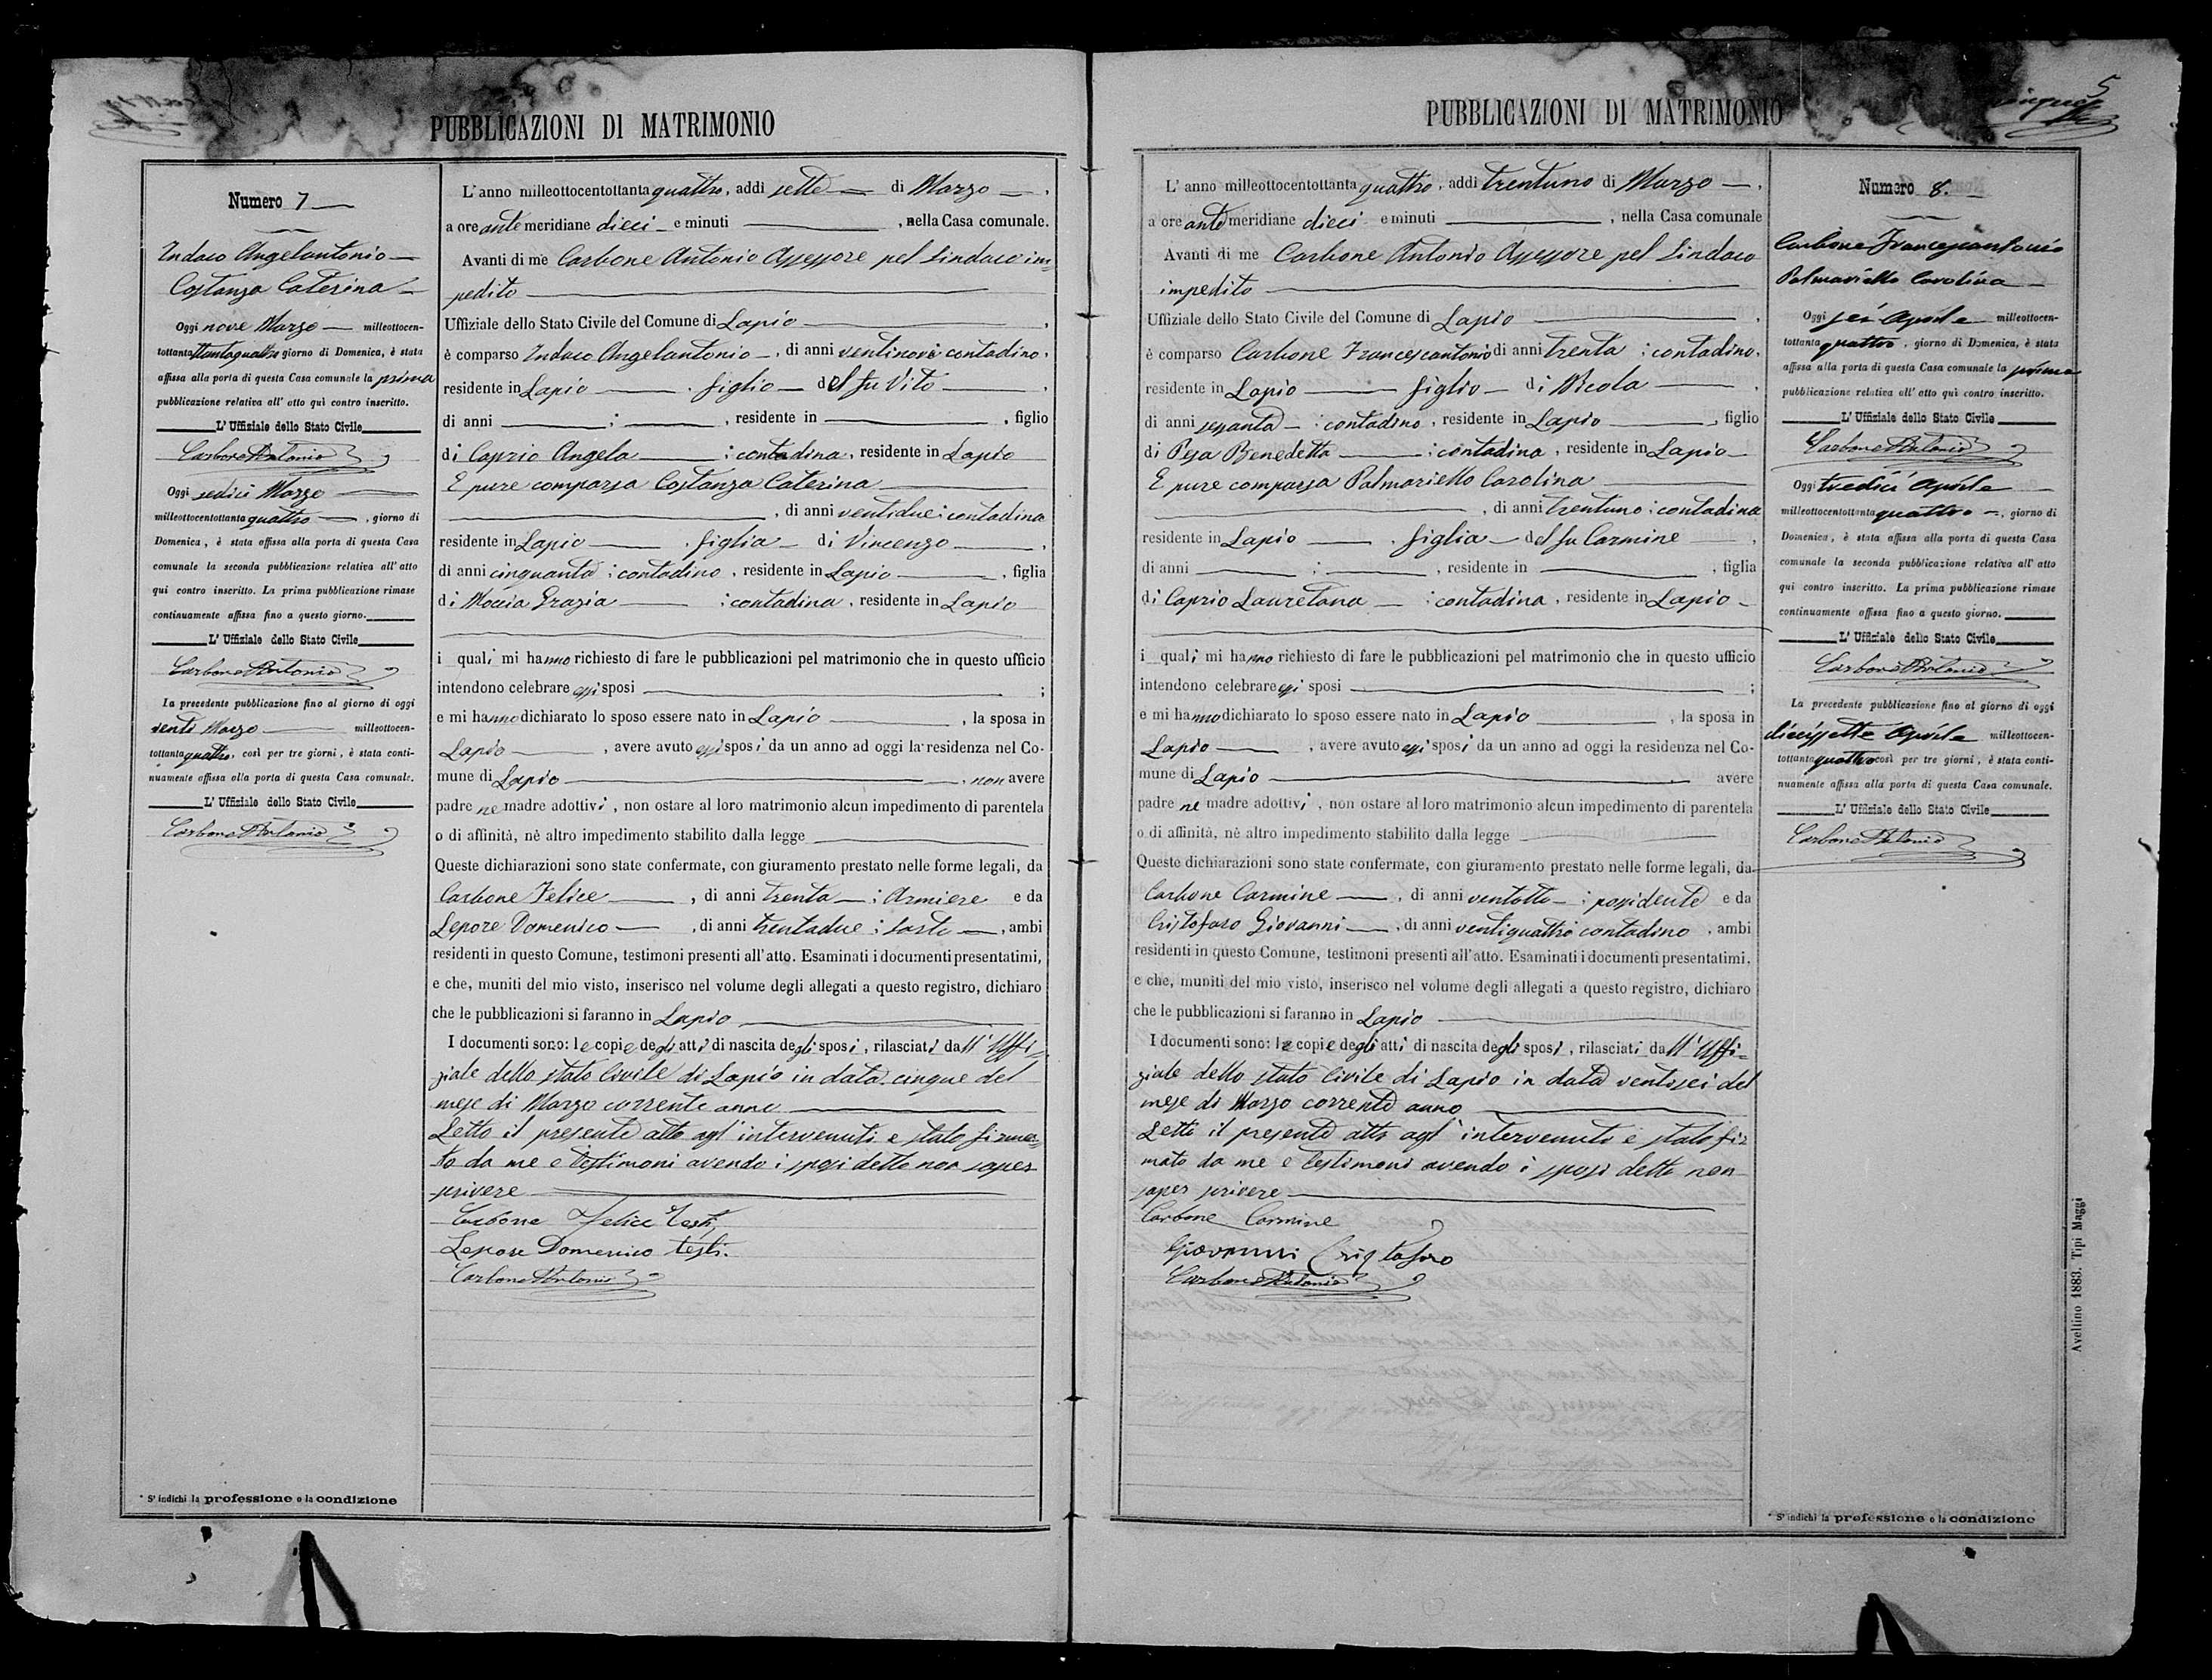 PUBBLICAZIONI DI MATRIMONIO
Numero 7
Indaco Angelantonio
Costanza Caterina
Oggi nove Marzo milleottocen-
tottantattantaquattro giorno di Domenica, è stata
affissa alla porta di questa Casa comunale la prima
pubblicazione relativa all' atto quì contro inscritto.
L' Uffiziale dello Stato Civile
Carbone Antonio
Oggi sedici Marzo
milleottocentottantaquattro, giorno di
Domenica, è stata affissa alla porta di questa Casa
comunale la seconda pubblicazione relativa all' atto
quì contro inscritto. La prima pubblicazione rimase
continuamente affissa fino a questo giorno.
L' Uffiziale dello Stato Civile
Carbone Antonio
La precedente pubblicazione fino al giorno di oggi
venti Marzo milleottocen-
tottantaquattro, così per tre giorni, è stata conti-
nuamente affissa alla porta di questa Casa comunale.
L' Uffiziale dello Stato Civile
Carbone Antonio
* S' indichi la professione o la condizione
L' anno milleottocentottantaquattro, addì sette di Marzo,
a ore antemeridiane dieci e minuti , nella Casa comunale.
Avanti di me Carbone Antonio Assessore pel Sindaco im-
pedito
Uffiziale dello Stato Civile del Comune di Lapio,
è comparso Indaco Angelantonio, di anni ventinove contadino,
residente in Lapio, figlio del fu Vito,
di anni ; , residente in , figlio
di Caprio Angela ; contadina, residente in Lapio
E pure comparsa Costanza Caterina
, di anni ventidue; contadina
residente in Lapio, figlia di Vincenzo,
di anni cinquanta; contadino, residente in Lapio, figlia
di Moccia Grazia ; contadina, residente in Lapio
i quali mi hanno richiesto di fare le pubblicazioni pel matrimonio che in questo ufficio
intendono celebrare essi sposi ;
e mi hanno dichiarato lo sposo essere nato in Lapio, la sposa in
Lapio, avere avuto essi sposi da un anno ad oggi la residenza nel Co-
mune di Lapio, non avere
padre ne madre adottivi, non ostare al loro matrimonio alcun impedimento di parentela
o di affinità, nè altro impedimento stabilito dalla legge
Queste dichiarazioni sono state confermate, con giuramento prestato nelle forme legali, da
Carbone Felice, di anni trenta; Armiere e da
Lepore Domenico, di anni trentadue; sarto, ambi
residenti in questo Comune, testimoni presenti all' atto. Esaminati i documenti presentatimi,
e che, muniti del mio visto, inserisco nel volume degli allegati a questo registro, dichiaro
che le pubblicazioni si faranno in Lapio
I documenti sono: le copie degli atti di nascita degli sposi, rilasciati dall' Uffi-
ziale dello stato Civile di Lapio in data cinque del
mese di Marzo corrente anno
Letto il presente atto agl' intervenuti e stato firma-
to da me e testimoni avendo i sposi detto non saper
scrivere
Carbone Felice testi,
Lepore Domenico testi.
Carbone Antonio
5
cinque
PUBBLICAZIONI DI MATRIMONIO
L' anno milleottocentottantaquattro, addì trentuno di Marzo,
a ore antemeridiane dieci e minuti , nella Casa comunale
Avanti di me Carbone Antonio Assessore pel Sindaco
impedito
Uffiziale dello Stato Civile del Comune di Lapio,
è comparso Carbone Francescantonio di anni trenta; contadino,
residente in Lapio figlio di Nicola,
di anni sessanta; contadino, residente in Lapio, figlio
di Pesa Benedetta ; contadina, residente in Lapio
E pure comparsa Palmariello Carolina
, di anni trentuno; contadina
residente in Lapio, figlia del fu Carmine,
di anni ; , residente in , figlia
di Caprio Lauretana ; contadina, residente in Lapio
i quali mi hanno richiesto di fare le pubblicazioni pel matrimonio che in questo ufficio
intendono celebrare essi sposi ;
e mi hanno dichiarato lo sposo essere nato in Lapio, la sposa in
Lapio, avere avuto essi sposi da un anno ad oggi la residenza nel Co-
mune di Lapio, avere
padre ne madre adottivi, non ostare al loro matrimonio alcun impedimento di parentela
o di affinità, nè altro impedimento stabilito dalla legge
Queste dichiarazioni sono state confermate, con giuramento prestato nelle forme legali, da
Carbone Carmine, di anni ventotto; possidente e da
Cristofaro Giovanni, di anni ventiquattro contadino, ambi
residenti in questo Comune, testimoni presenti all' atto. Esaminati i documenti presentatimi,
e che, muniti del mio visto, inserisco nel volume degli allegati a questo registro, dichiaro
che le pubblicazioni si faranno in Lapio
I documenti sono: le copie degli atti di nascita degli sposi, rilasciati dall' Uffi-
ziale dello stato Civile di Lapio in data ventisei del
mese di Marzo corrente anno
Letto il presente atto agl' intervenuti è stato fir
mato da me e testimoni avendo i sposi detto non
saper scrivere
Carbone Carmine
Giovanni Cristofaro
Carbone Antonio
Numero 8.
Carbone Francescantonio
Palmariello Carolina
Oggi sei Aprile milleottocen-
tottantaquattro, giorno di Domenica, è stata
affissa alla porta di questa Casa comunale la prima
pubblicazione relativa all' atto quì contro inscritto.
L' Uffiziale dello Stato Civile
Carbone Antonio
Oggi tredici Aprile
milleottocentottantaquattro, giorno di
Domenica, è stata affissa alla porta di questa Casa
comunale la seconda pubblicazione relativa all' atto
quì contro inscritto. La prima pubblicazione rimase
continuamente affissa fino a questo giorno.
L' Uffiziale dello Stato Civile
Carbone Antonio
La precedente pubblicazione fino al giorno di oggi
diecissette Aprile milleottocen-
tottantaquattro così per tre giorni, è stata conti-
nuamente affissa alla porta di questa Casa comunale.
L' Uffiziale dello Stato Civile
Carbone Antonio
* S' indichi la professione o la condizione
Avellino 1883. Tipi Maggi